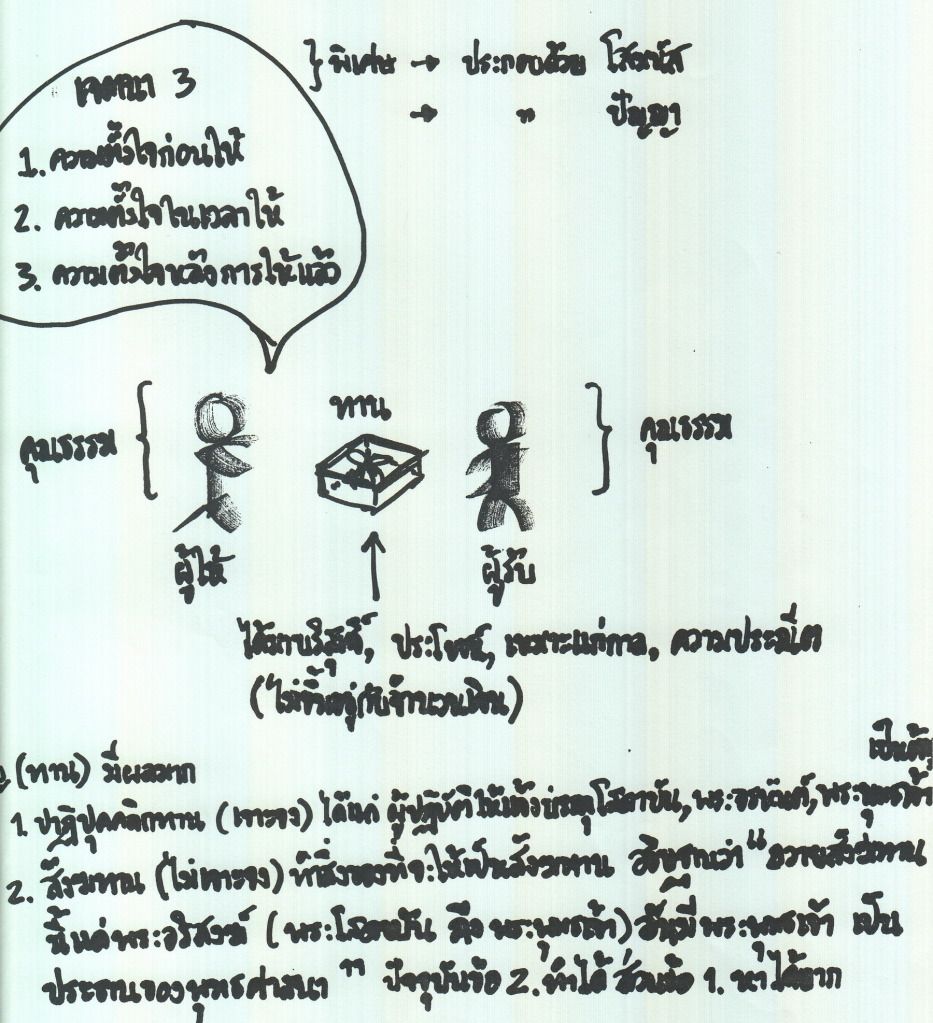 เจตนา 3
1. ความตั้งใจก่อนให้
2. ความตั้งใจในเวลาให้
3. ความตั้งใจหลังการให้แล้ว
} พิเศษ → ประกอบด้วย โสมนัส
→ " ปัญญา
คุณธรรม
ทาน
คุณธรรม
ผู้ให้
ผู้รับ
ได้มาบริสุทธิ์, ประโยชน์, เหมาะแก่กาล, ความประณีต
(ไม่ขึ้นอยู่กับจำนวนเงิน)
(ทาน) มีผลมาก
เป็นต้น
1. ปาฏิปุคคลิกทาน (เจาะจง) ได้แก่ ผู้ปฏิบัติให้แจ้งบรรลุโสดาบัน, พระอรหันต์, พระพุทธเจ้า
2. สังฆทาน (ไม่เจาะจง) ทำสิ่งของที่จะให้เป็นสังฆทาน อธิษฐานว่า " ถวายสังฆทาน
นี้แด่พระอริสงฆ์ (พระโสดาบัน ถึง พระพุทธเจ้า) อันมีพระพุทธเจ้า เป็น
ประธานของพุทธศาสนา " ปัจจุบันข้อ 2. ทำได้ ส่วนข้อ 1. หาได้ยาก